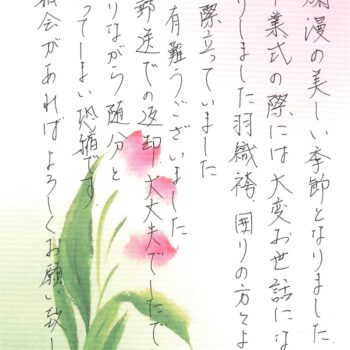 爛漫の美しい季節となりました
業式の際には大変お世話にな
りしました羽織袴、囲りの方々よ
際立っていました
有難うございました
郵送での返却大丈夫でしたで
りながら随分と
ってしまい恐縮です
会があればよろしくお願い致し